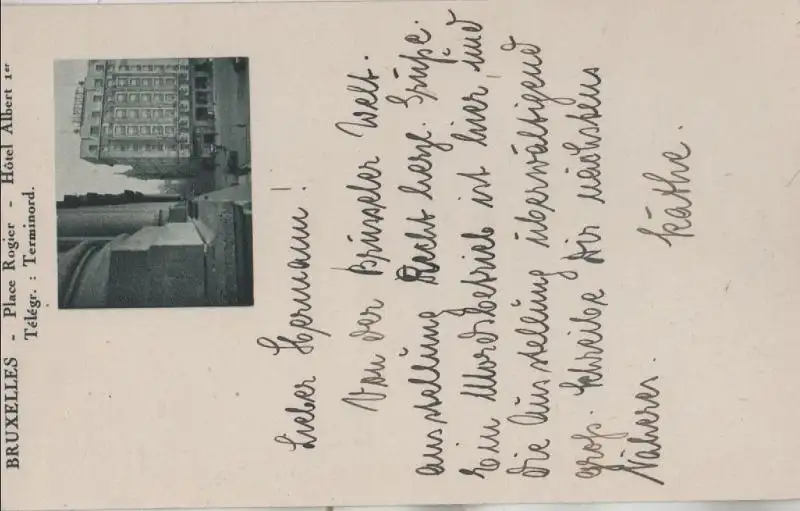 BRUXELLES - Place Rogier - Hôtel Albert 1er
Télégr. : Terminord.
Lieber Hermann!
Von der Brüsseler Welt-
ausstellung Recht herzl. Grüße.
Ein Mordsbetrieb ist hier, und
die Ausstellung überwältigend
groß. Schreibe Dir nächstens
Näheres.
Käthe.